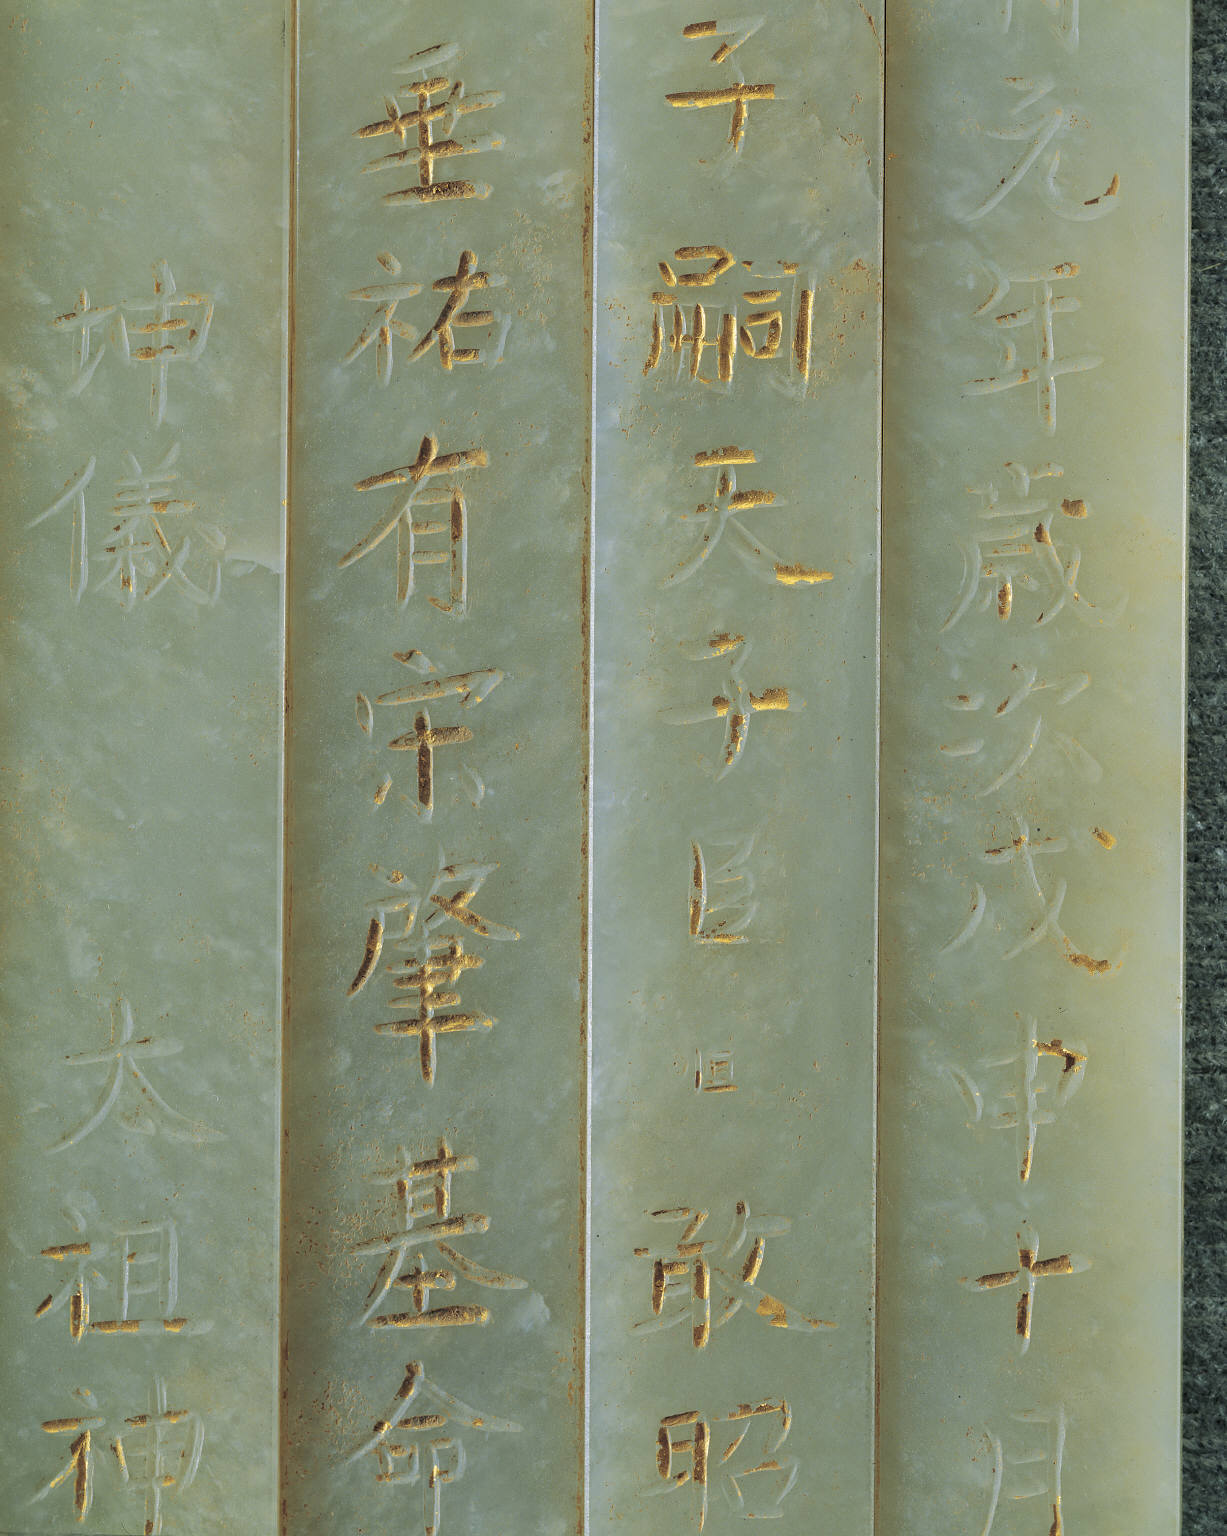 元年歳次戊申十月
子嗣天子臣恒敢昭
垂祐有宋肇基命
坤儀太祖神